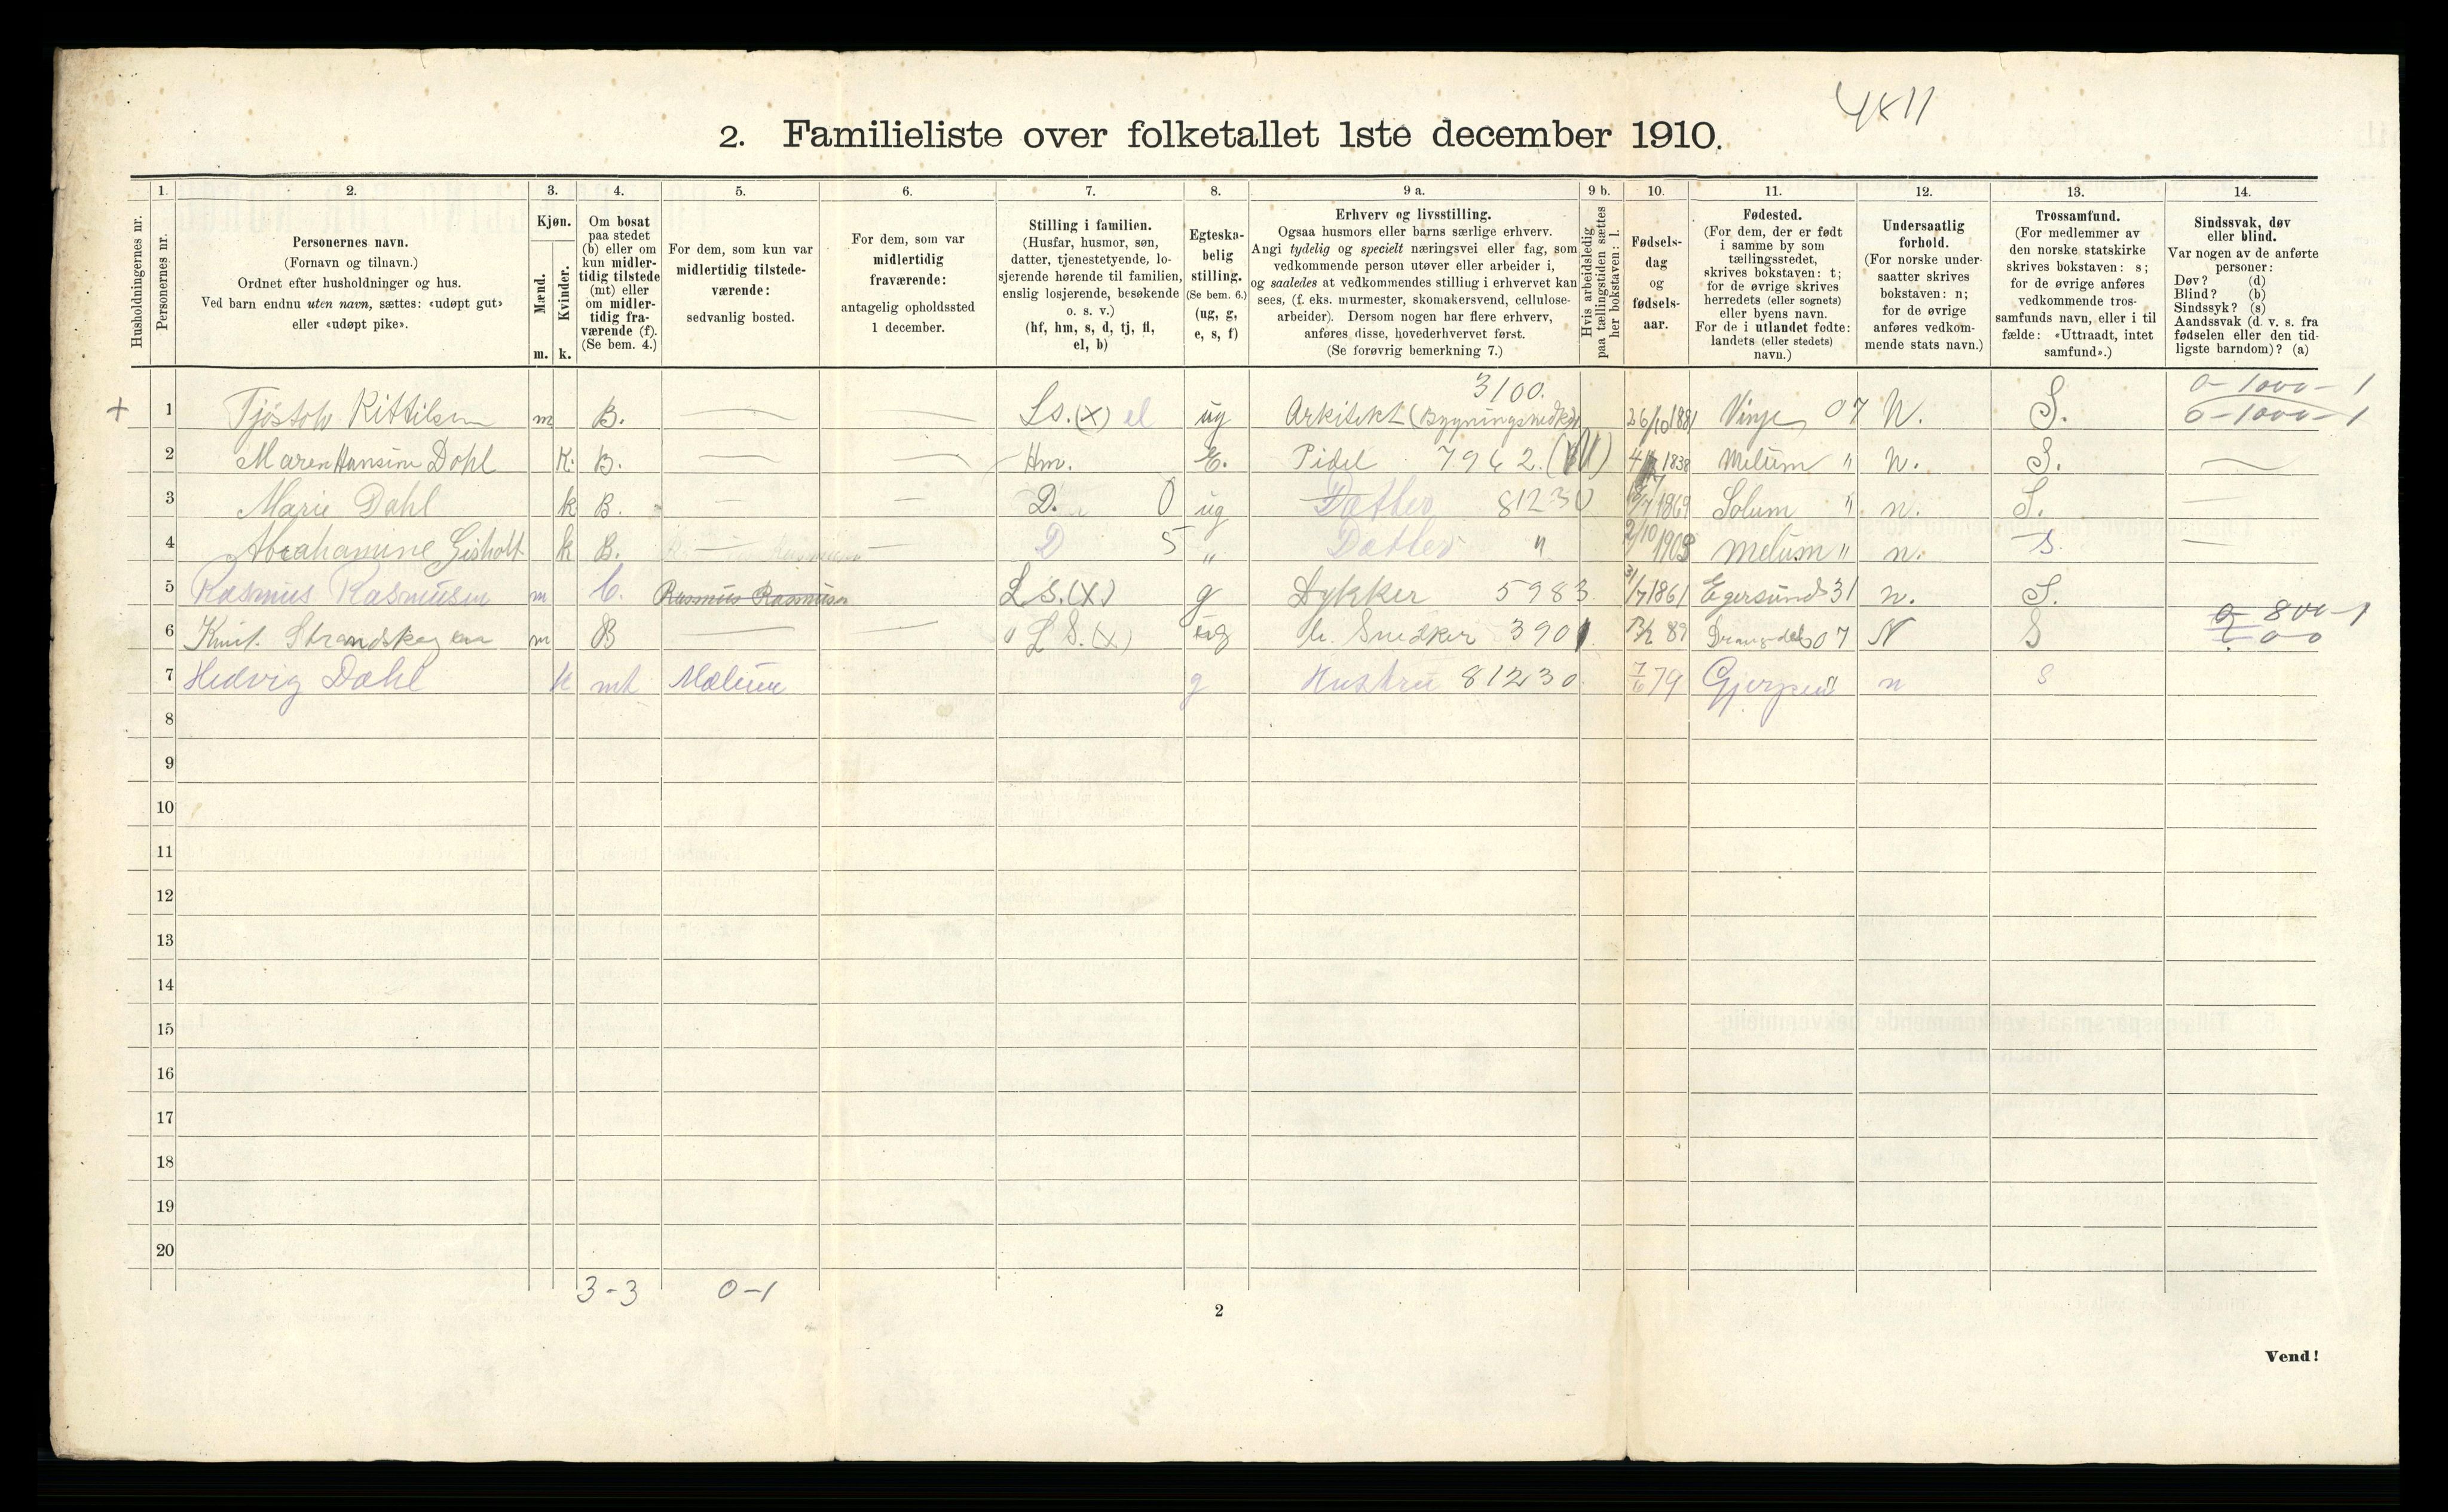 4811
2. Familieliste over folketallet 1ste december 1910.
Husholdningernes nr.
1.
Personernes nr.
2.
Personernes navn.
(Fornavn og tilnavn.)
Ordnet efter husholdninger og hus.
Ved barn endnu uten navn, sættes: «udøpt gut»
eller «udøpt pike».
3.
Kjøn.
Mænd.
Kvinder.
m. k.
4.
Om bosat
paa stedet
(b) eller om
kun midler-
tidig tilstede
(mt) eller
om midler-
tidig fra-
værende (f).
(Se bem. 4.)
5.
For dem, som kun var
midlertidig tilstede-
værende:
sedvanlig bosted.
6.
For dem, som var
midlertidig
fraværende:
antagelig opholdssted
1 december.
7.
Stilling i familien.
(Husfar, husmor, søn,
datter, tjenestetyende, lo-
sjerende hørende til familien,
enslig losjerende, besøkende
o. s. v.)
(hf, hm, s, d, tj, fl,
el, b)
8.
Egteska-
belig
stilling.
(Se bem. 6.)
(ug, g,
e, s, f)
9 a.
Erhverv og livsstilling.
Ogsaa husmors eller barns særlige erhverv.
Angi tydelig og specielt næringsvei eller fag, som
vedkommende person utøver eller arbeider i,
og saaledes at vedkommendes stilling i erhvervet kan
sees, (f. eks. murmester, skomakersvend, cellulose-
arbeider). Dersom nogen har flere erhverv,
anføres disse, hovederhvervet først.
(Se forøvrig bemerkning 7.)
9 b.
Hvis arbeidsledig
paa tællingstiden sættes
her bokstaven: l.
10.
Fødsels-
dag
og
fødsels-
aar.
11.
Fødested.
(For dem, der er født
i samme by som
tællingsstedet,
skrives bokstaven: t;
for de øvrige skrives
herredets (eller sognets)
eller byens navn.
For de i utlandet fødte:
landets (eller stedets)
navn.)
12.
Undersaatlig
forhold.
(For norske under-
saatter skrives
bokstaven: n;
for de øvrige
anføres vedkom-
mende stats navn.)
13.
Trossamfund.
(For medlemmer av
den norske statskirke
skrives bokstaven: s;
for de øvrige anføres
vedkommende tros-
samfunds navn, eller i til
fælde: «Uttraadt, intet
samfund».)
14.
Sindssvak, døv
eller blind.
Var nogen av de anførte
personer:
Døv? (d)
Blind? (b)
Sindssyk? (s)
Aandssvak (d. v. s. fra
fødselen eller den tid-
ligste barndom)? (a)
3100. 0-1000-1
+ 1 Tjöstolv Kittilsen m B. — — Ls.(X) el ug Arkitekt (Bygningsnedk) 26/10 1881 Vinje 07 N. S. 0-1000-1
2 Maren Hansine Dahl K. B. — — Hm. E. Pidel 7962. 4 1838 Melum " n. S. —
3 Marie Dahl k B. — — D. 0 ug Datter 81230 1869 Solum " n. S. —
4 Abrahamine Gisholt k B. — — D 5 " Datter " 2/10 1903 Melum " n. S. —
5 Rasmus Rasmusen m b. Rasmus Rasmusen Ls.(X) g Dykker 5983 3/7 1861 Egersund 31 n. S.
0-800-1
6 Knut Strandskogen m B — — LS.(X) ug Snedker 3901 13/2 89 Drangedal 07 N S
7 Hedvig Dahl k mt Melum g Hustru 81230 7/6 79 Gjerpen " n S
8
9
10
11
12
13
14
15
16
17
18
19
20
3-3 0-1
2
Vend!